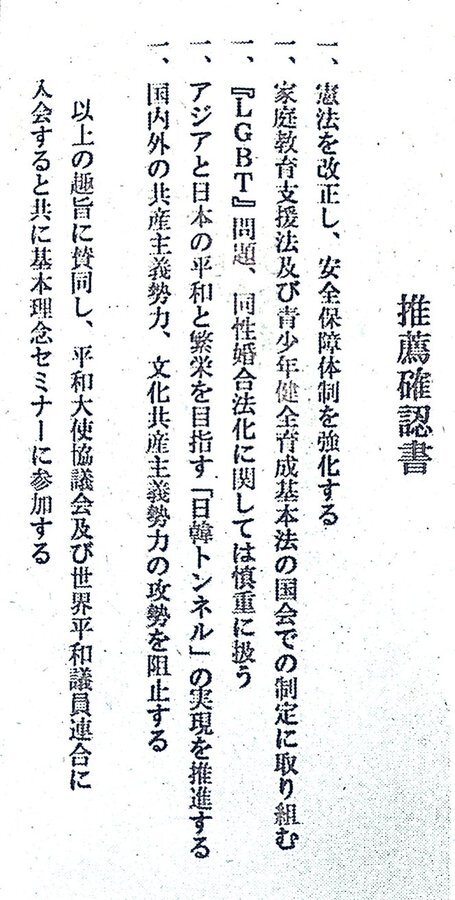 推薦確認書
一、憲法を改正し、安全保障体制を強化する
一、家庭教育支援法及び青少年健全育成基本法の国会での制定に取り組む
一、『LGBT』問題、同性婚合法化に関しては慎重に扱う
一、アジアと日本の平和と繁栄を目指す「日韓トンネル」の実現を推進する
一、国内外の共産主義勢力、文化共産主義勢力の攻勢を阻止する
以上の趣旨に賛同し、平和大使協議会及び世界平和議員連合に
入会すると共に基本理念セミナーに参加する